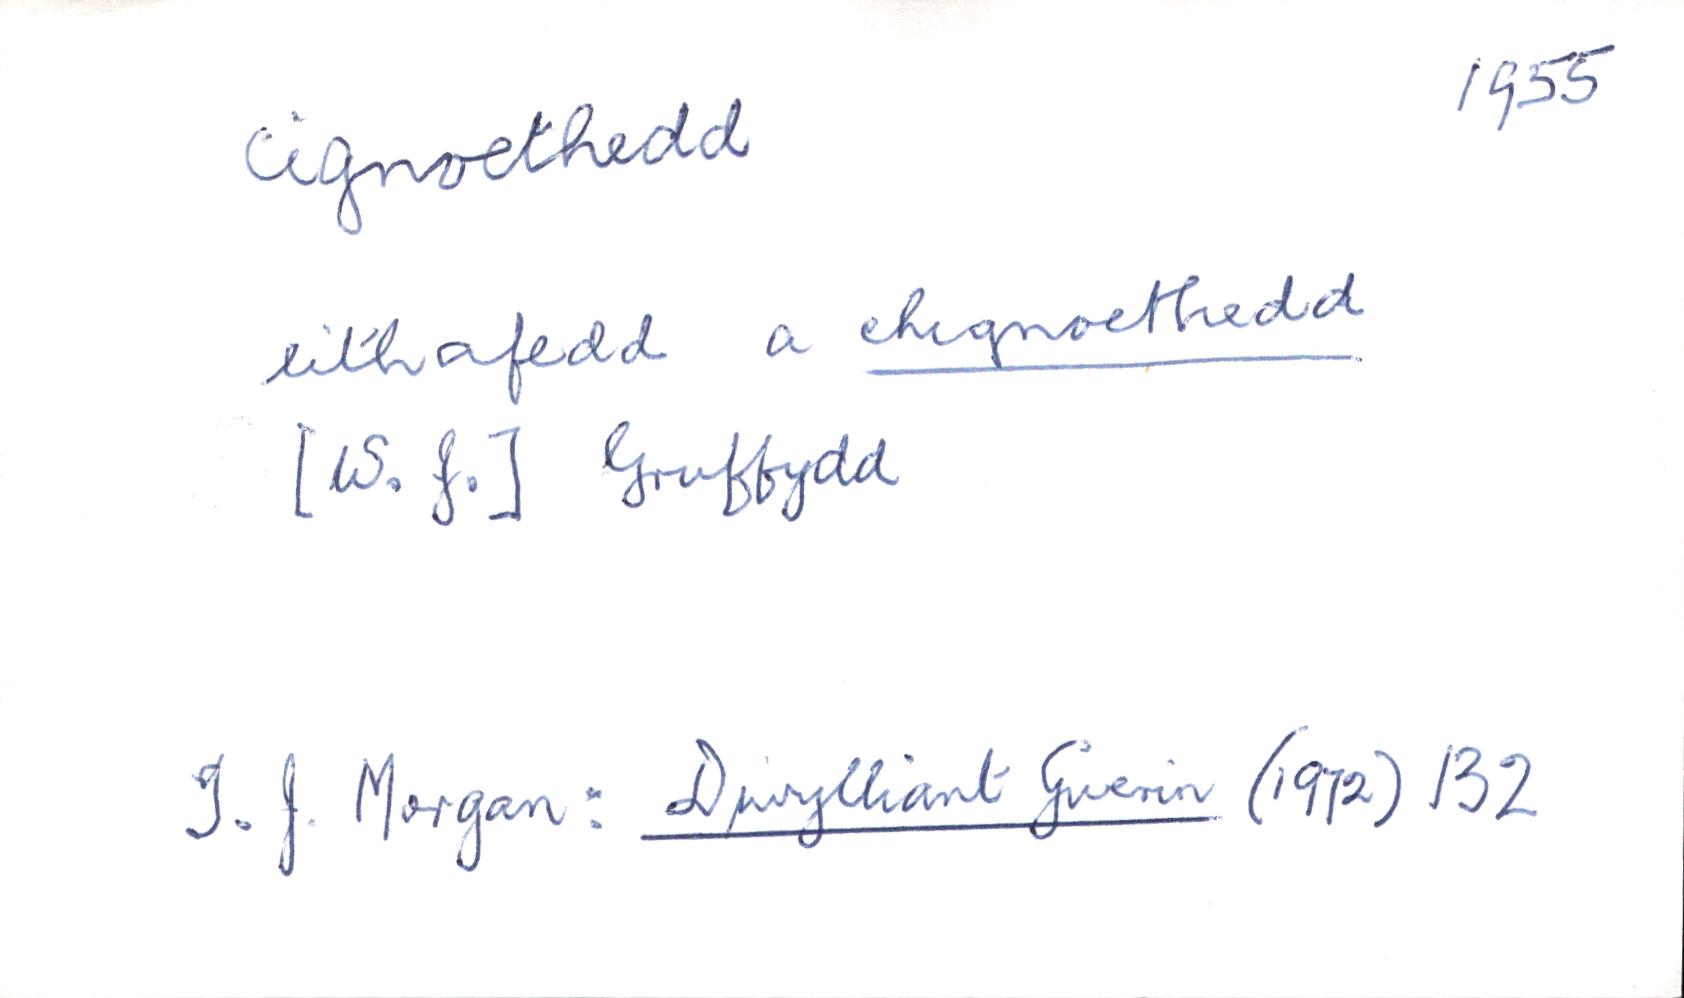 1955
cignoethedd
eithafedd a chignoethedd
[W. J.] Gruffydd
T. J. Morgan: Diwylliant Gwerin (1972) 132